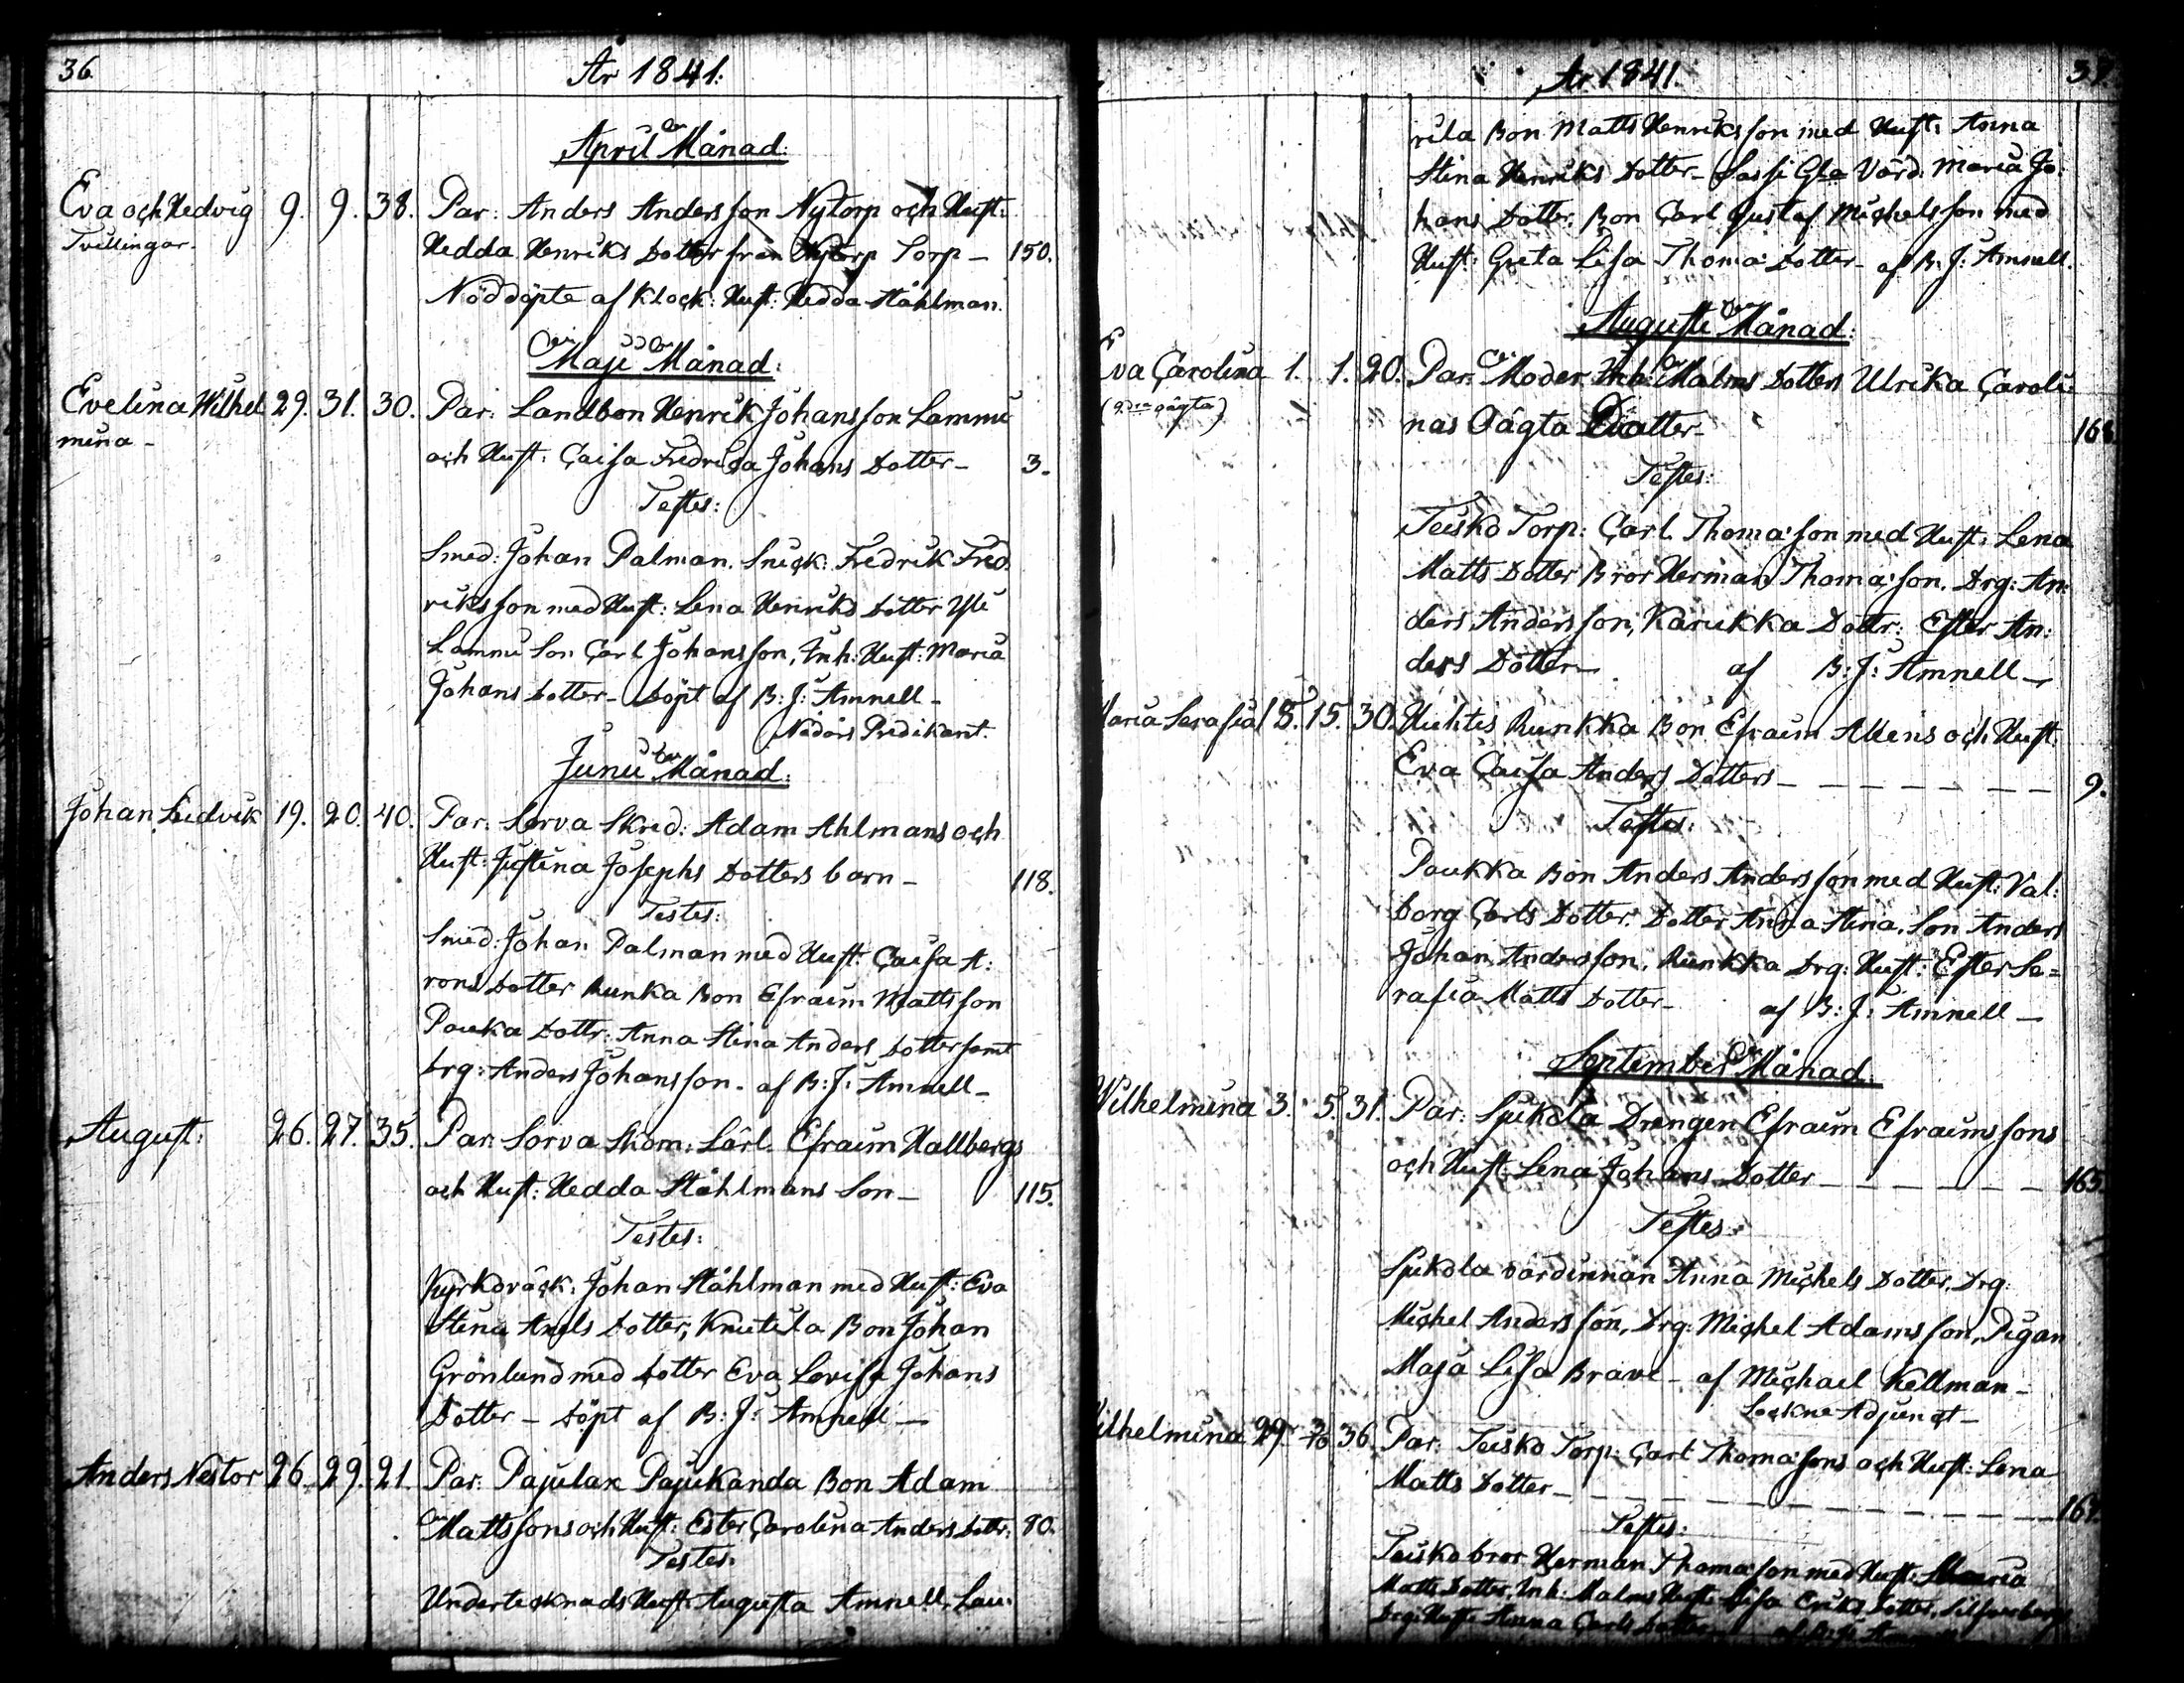 36.
År 1841.
April Månad:
Eva och Hedvig 9. 9. 38. Par: Anders Andersson Nytorp och Hust:
Tvillingar. Hedda Henriks Dotter från Nytorp Torp — 150.
Nöddöpte af Klock: Hust: Hedda Ståhlman.
Maji Månad:
Evelina Wilhel 29. 31. 30. Par: Landbon Henrik Johansson Lammi
mina - och Hust: Caisa Fredrica Johans Dotter - 3.
Testes:
Smed: Johan Palman. Snick: Fredrik Fred
riksson med Hust: Lena Henriks Dotter Yli
Lammi Son Carl Johansson, Inh: Hust: Maria
Johans Dotter - Döpt af B: J: Amnell -
Nådårs Predikant.
Junii Månad:
Johan Ludvik 19. 20. 40. Par: Sorva Skred: Adam Ahlmans och
Hust: Justina Josephs Dotters barn - 118.
Testes:
Smed: Johan Palman med Hust: Caisa A:
rons Dotter Runka Bon Efraim Mattsson
Pouka Dottr: Anna Stina Anders Dotter samt
Drg: Anders Johansson. af B: J: Amnell -
August: 26. 27. 35. Par: Sorva Skom: Lärl. Efraim Hallbergs
och Hust: Hedda Ståhlmans Son - 115.
Testes:
Kyrkoväck: Johan Ståhlman med Hust: Eva
Stina Axels Dotter, Knutila Bon Johan
Grönlund med Dotter Eva Lovisa Johans
Dotter - Döpt af B: J: Amnell -
Anders Nestor 26. 29. 21. Par: Pajulax Pajukanda Bon Adam
Mattssons och Hust: Ester Carolina Anders Dottr: 80.
Testes:
Undertecknads Hust: Augusta Amnell, Lau:
37.
År 1841.
rila Bon Matts Henriksson med Hust: Anna
Stina Henriks Dotter - Sassi Gla Värd: Maria Jo:
hans Dotter. Bon Carl Gustaf Michelsson med
Hust: Greta Lisa Thoma Dotter - af B: J: Amnell.
Augusti Månad:
Eva Carolina 1. 1. 20. Par: Moder Inh: Malms Dotters Ulrika Caroli:
nas Oägta Dotter - 168.
Testes:
Teisko Torp: Carl Thomasson med Hust: Lena
Matts Dotter Bror Herman Thomasson. Drg: An:
ders Andersson, Karukka Dottr: Ester An:
ders Dotter - af B: J: Amnell -
Maria Serafia 15. 15. 30. Huhtis Runkka Bon Efraim Allens och Hust.
Eva Caisa Anders Dotters - - - - - - - 9.
Testes:
Poukka Bon Anders Andersson med Hust: Val:
borg Carls Dotter. Dotter Anna Stina. Son Anders
Johan Andersson. Runkka Drg: Hust: Ester Se=
rafia Matts Dotter - af B: J: Amnell -
September Månad.
Wilhelmina 3. 5. 31. Par: Sjukola Drengen Efraim Efraimssons
och Hust. Lena Johans Dotter - - - - - - 165.
Testes:
Sjukola värdinnan Anna Michels Dotter, Drg:
Michel Andersson, Drg: Michel Adamsson, Pigan
Maja Lisa Brave - af Michael Kellman -
Lockne Adjunct -
Wilhelmina 29. 3/10 36. Par: Teisko Torp: Carl Thomassons och Hust: Lena
Matts Dotter - - - - - - - 167.
Testes:
Teisko bror Herman Thomasson med Hust: Maria
Matts Dotter, Inh: Malms Hust: Lisa Eriks Dotter,
Drg: Hust: Anna Carls Dotter